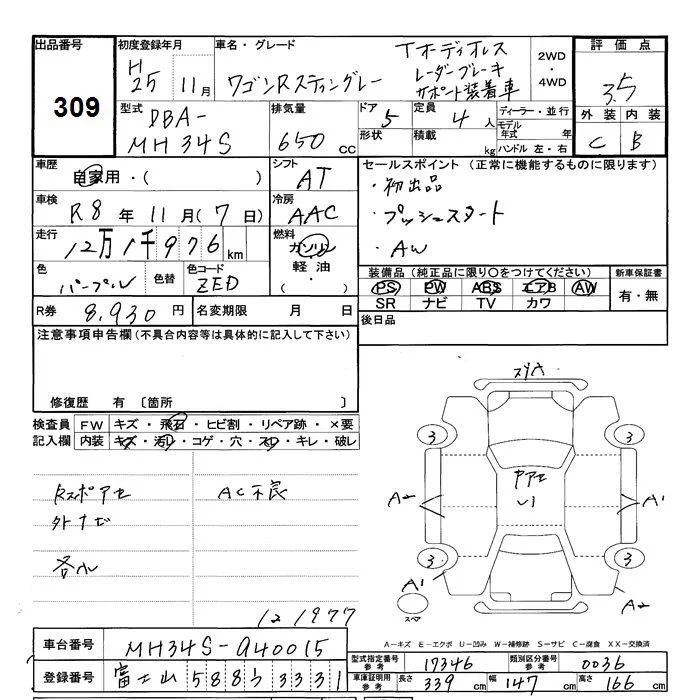 出品番号
309
初度登録年月
H
25 11月
車名・グレード
ワゴンRスティングレー
Tオーディオレス
レーダーブレーキ
サポート装着車
2WD
・
4WD
評価点
3.5
外装 内装
C B
型式
DBA-
MH34S
排気量
650 cc
ドア
5
形状
定員
4 人
積載
kg
ディーラー・並行
モデル
年式 年
ハンドル 左・右
車歴
自家用・( )
シフト
AT
車検
R8 年 11 月(7 日)
冷房
AAC
走行
12万1千976km
燃料
ガソリン
軽油
( ・ )
色
パープル
色替
色コード
ZED
R券
8,930 円
名変期限 月 日
セールスポイント (正常に機能するものに限ります)
・初出品
・プッシュスタート
・AW
装備品 (純正品に限り○をつけてください)
PS PW ABS エアB AW
SR ナビ TV カワ
新車保証書
有・無
後日品
注意事項申告欄(不具合内容等は具体的に記入して下さい)
修復歴 有 〔箇所 〕
検査員
記入欄
FW キズ・飛石・ヒビ割・リペア跡・×要
内装 キズ・汚レ・コゲ・穴・スレ・キレ・破レ
Rスポアセ
外ナビ
各ル
AC不良
121977
スリ穴
3 3
3 3
ヤアセ
U1
A2 A1
A1 A2
スペア
A-キズ E-エクボ U-凹み W-補修跡 S-サビ C-腐食 XX-交換済
車台番号
MH34S-940015
登録番号
富士山 588 う 3331
型式指定番号
参考
17346
類別区分番号
参考
0036
車庫証明用
参考
長さ 339 cm 幅 147 cm 高さ 166 cm